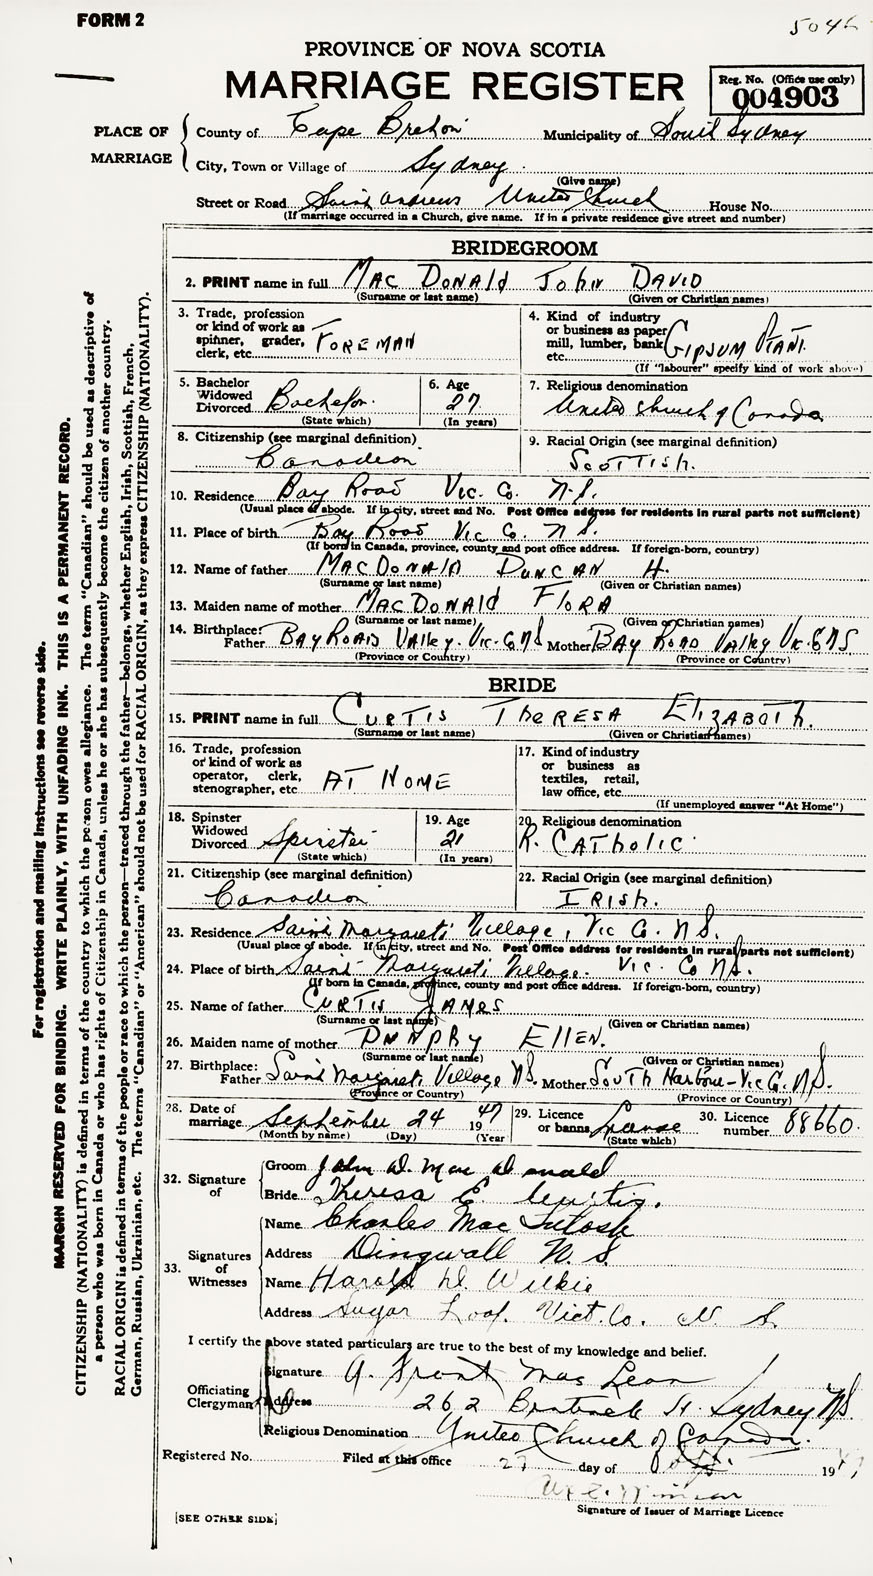 FORM 2
5046
PROVINCE OF NOVA SCOTIA
MARRIAGE REGISTER
Reg. No. (Office use only)
004903
PLACE OF MARRIAGE
County of Cape Breton Municipality of South Sydney
City, Town or Village of Sydney
(Give name)
Street or Road Saint Andrews United Church House No.
(If marriage occurred in a Church, give name. If in a private residence give street and number)
BRIDEGROOM
2. PRINT name in full MAC DONAld John DAVID
(Surname or last name) (Given or Christian names)
3. Trade, profession or kind of work as spinner, grader, clerk, etc. FOREMAN
4. Kind of industry or business as paper mill, lumber, bank etc. GIPSUM PLANT
(If "labourer" specify kind of work above)
5. Bachelor Widowed Divorced Bachelor
(State which)
6. Age 27
(In years)
7. Religious denomination United Church of Canada
8. Citizenship (see marginal definition) Canadian
9. Racial Origin (see marginal definition) Scottish.
10. Residence Bay Road Vic. Co. N.S.
(Usual place of abode. If in city, street and No. Post Office address for residents in rural parts not sufficient)
11. Place of birth Bay Road Vic Co. N S.
(If born in Canada, province, county and post office address. If foreign-born, country)
12. Name of father MACDONALD DUNCAN H.
(Surname or last name) (Given or Christian names)
13. Maiden name of mother MACDONALD FLORA
(Surname or last name) (Given or Christian names)
14. Birthplace: Father BAY ROAD VAlley. Vic. Co NS Mother BAY ROAD VAlley Vic. Co NS
(Province or Country) (Province or Country)
BRIDE
15. PRINT name in full CURTIS THERESA ElIZABOTH.
(Surname or last name) (Given or Christian names)
16. Trade, profession or kind of work as operator, clerk, stenographer, etc AT HOME
17. Kind of industry or business as textiles, retail, law office, etc.
(If unemployed answer "At Home")
18. Spinster Widowed Divorced Spinster
(State which)
19. Age 21
(In years)
20. Religious denomination R. CATholIC
21. Citizenship (see marginal definition) Canadian
22. Racial Origin (see marginal definition) IRISH.
23. Residence Saint Margarets Village, Vic Co. N S.
(Usual place of abode. If in city, street and No. Post Office address for residents in rural parts not sufficient)
24. Place of birth Saint Margarets Village. Vic. Co NS.
(If born in Canada, province, county and post office address. If foreign-born, country)
25. Name of father CURTIS JAMES
(Surname or last name) (Given or Christian names)
26. Maiden name of mother DUNPHY EllEN.
(Surname or last name) (Given or Christian names)
27. Birthplace: Father Saint Margarets Village NS. Mother SOUTH Harbour-Vic Co. N.S.
(Province or Country) (Province or Country)
28. Date of marriage September 24 1947
(Month by name) (Day) (Year)
29. Licence or banns License
(State which)
30. Licence number 88660.
32. Signature of
Groom John D. Mac Donald
Bride Theresa E. Curtis.
33. Signatures of Witnesses
Name Charles Mac Intosh
Address Dingwall N. S.
Name Harold D. Wilkie
Address Sugar Loaf. Vict. Co. N. S.
I certify the above stated particulars are true to the best of my knowledge and belief.
Officiating Clergyman
Signature A. Frank Mac Lean
Address 262 St. Sydney NS.
Religious Denomination United Church of Canada.
Registered No. Filed at this office 27 day of 1947
Signature of Issuer of Marriage Licence
[SEE OTHER SIDE]
For registration and mailing instructions see reverse side.
MARGIN RESERVED FOR BINDING. WRITE PLAINLY, WITH UNFADING INK. THIS IS A PERMANENT RECORD.
CITIZENSHIP (NATIONALITY) is defined in terms of the country to which the person owes allegiance. The term "Canadian" should be used as descriptive of
a person who was born in Canada or who has rights of Citizenship in Canada, unless he or she has subsequently become the citizen of another country.
RACIAL ORIGIN is defined in terms of the people or race to which the person—traced through the father—belongs, whether English, Irish, Scottish, French,
German, Russian, Ukrainian, etc. The terms "Canadian" or "American" should not be used for RACIAL ORIGIN, as they express CITIZENSHIP (NATIONALITY).